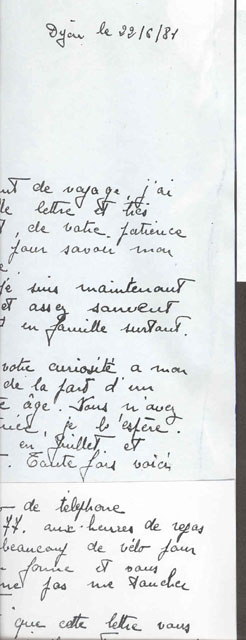 Dijon le 22/6/81
nt de voyage, j'ai
lle lettre et très
, de votre patience
pour savoir mon
je suis maintenant
et assez souvent
en famille surtout.
votre curiosité a mon
de la part d'un
âge. Vous n'avez
je l'espère.
en Juillet et
. Toute fois voici
- de téléphone
77. aux heures de repas
beaucoup de vélo pour
forme et vous
ne pas me
que cette lettre vous